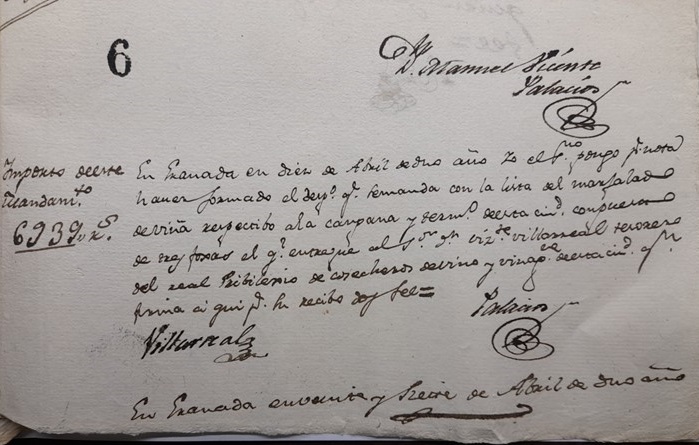 6
D. Manuel Vicente
Palacios
Importo de este
Mandam.to
6939 v r.s
En Granada en diez de Abril de dho año Yo el S.no pongo p.r nota
haver formado el desp.o q.e se manda con la lista del marjal
de viña respectibo a la campana y term.o de esta ciu.d compuesto
de tres foxas el q.e entregue al S.or D.n Viz.te Villarreal tesorero
del real Pribilexio de cosecheros de vino y vinag.re de esta ciu.d q.n
firma aqui p.r su recibo doy fee=
Villarreal
Palacios
En Granada en veinte y siete de Abril de dho año